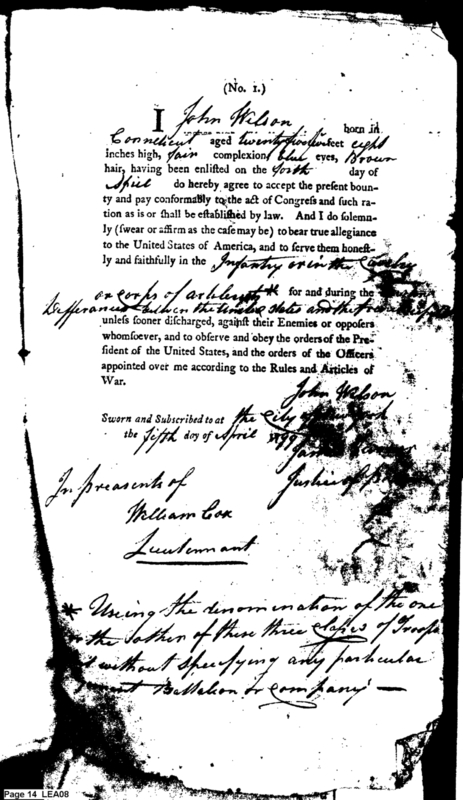 (No. 1.)
I John Wilson born in
Conneticut aged twenty two five feet eight
inches high, fair complexion blue eyes, Brown
hair, having been enlisted on the forth day of
April do hereby agree to accept the present boun-
ty and pay conformably to the act of Congress and such ra-
tion as is or shall be established by law. And I do solemn-
ly (swear or affirm as the case may be) to bear true allegiance
to the United States of America, and to serve them honest-
ly and faithfully in the Infantry or in the Cavalry
or corps of artilery* for and during the
Differances between the United States and the
unless sooner discharged, against their Enemies or opposers
whomsoever, and to observe and obey the orders of the Pre-
sident of the United States, and the orders of the Officers
appointed over me according to the Rules and Articles of
War.
John Wilson
Sworn and Subscribed to at the City of
the fifth day of April
James
In preasents of Justice of
William Cox
Lieutennant
* Useing the denomination of the one
or the other of these three classes of Troops
without specifying any particular
Battalion or company —
Page 14 LEA08